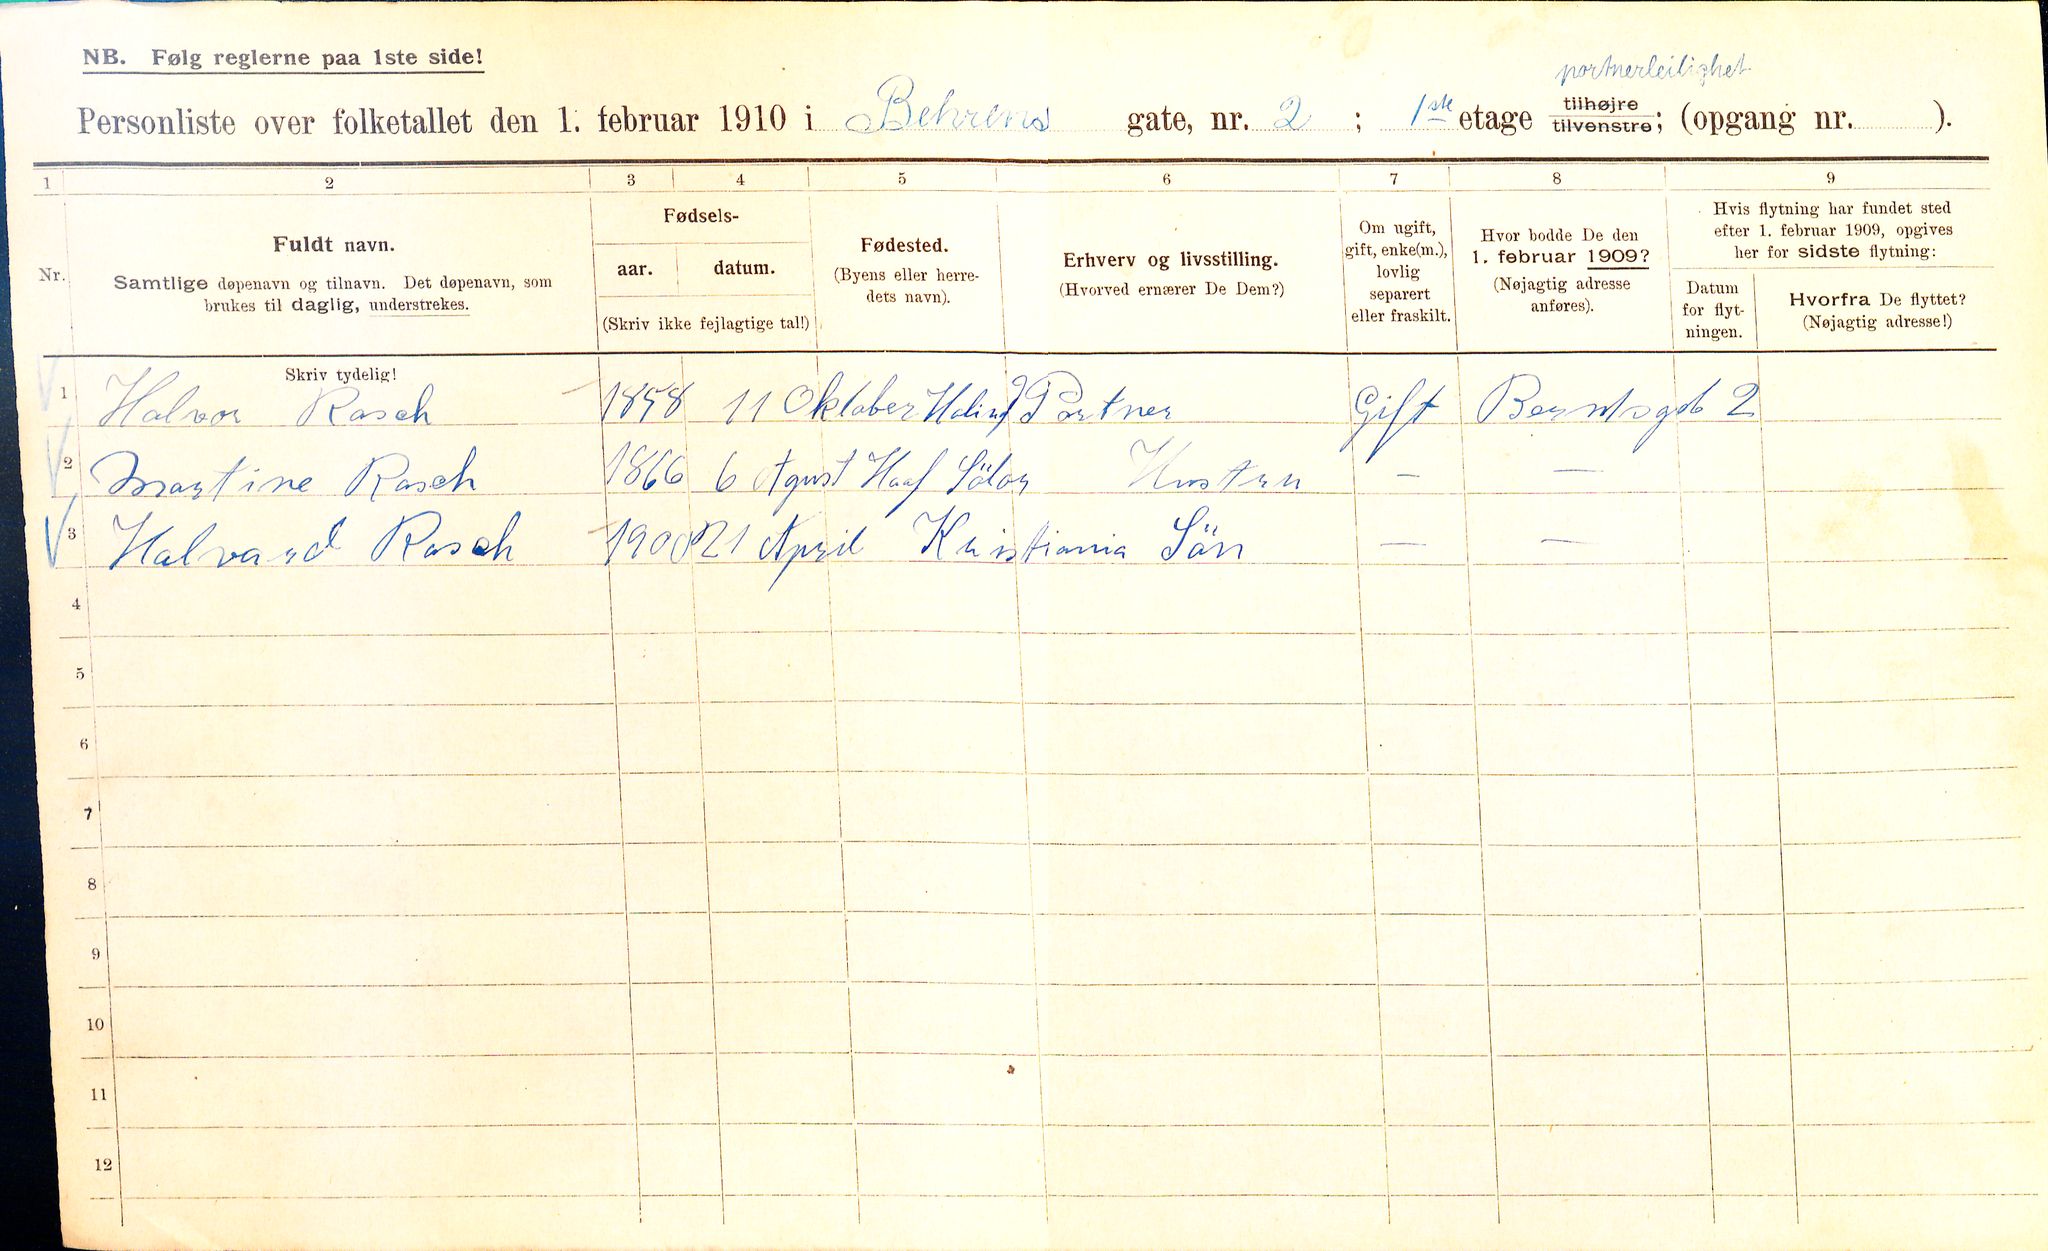 NB. Følg reglerne paa 1ste side!
portnerleilighet
Personliste over folketallet den 1. februar 1910 i Behrens gate, nr. 2 ; 1ste etage tilhøjre tilvenstre; (opgang nr. ).
1 2 3 4 5 6 7 8 9
Nr.
Fuldt navn.
Samtlige døpenavn og tilnavn. Det døpenavn, som
brukes til daglig, understrekes.
Skriv tydelig!
Fødsels-
aar. datum.
(Skriv ikke fejlagtige tal!)
Fødested.
(Byens eller herre-
dets navn).
Erhverv og livsstilling.
(Hvorved ernærer De Dem?)
Om ugift,
gift, enke(m.),
lovlig
separert
eller fraskilt.
Hvor bodde De den
1. februar 1909?
(Nøjagtig adresse
anføres).
Hvis flytning har fundet sted
efter 1. februar 1909, opgives
her for sidste flytning:
Datum
for flyt-
ningen.
Hvorfra De flyttet?
(Nøjagtig adresse!)
1 Halvor Rasch 1858 11 Oktober Portner Gift 2
2 Martine Rasch 1866 6 Agust Sölör Hustru — —
3 Halvard Rasch 1900 21 April Kristiania Sön — —
4
5
6
7
8
9
10
11
12